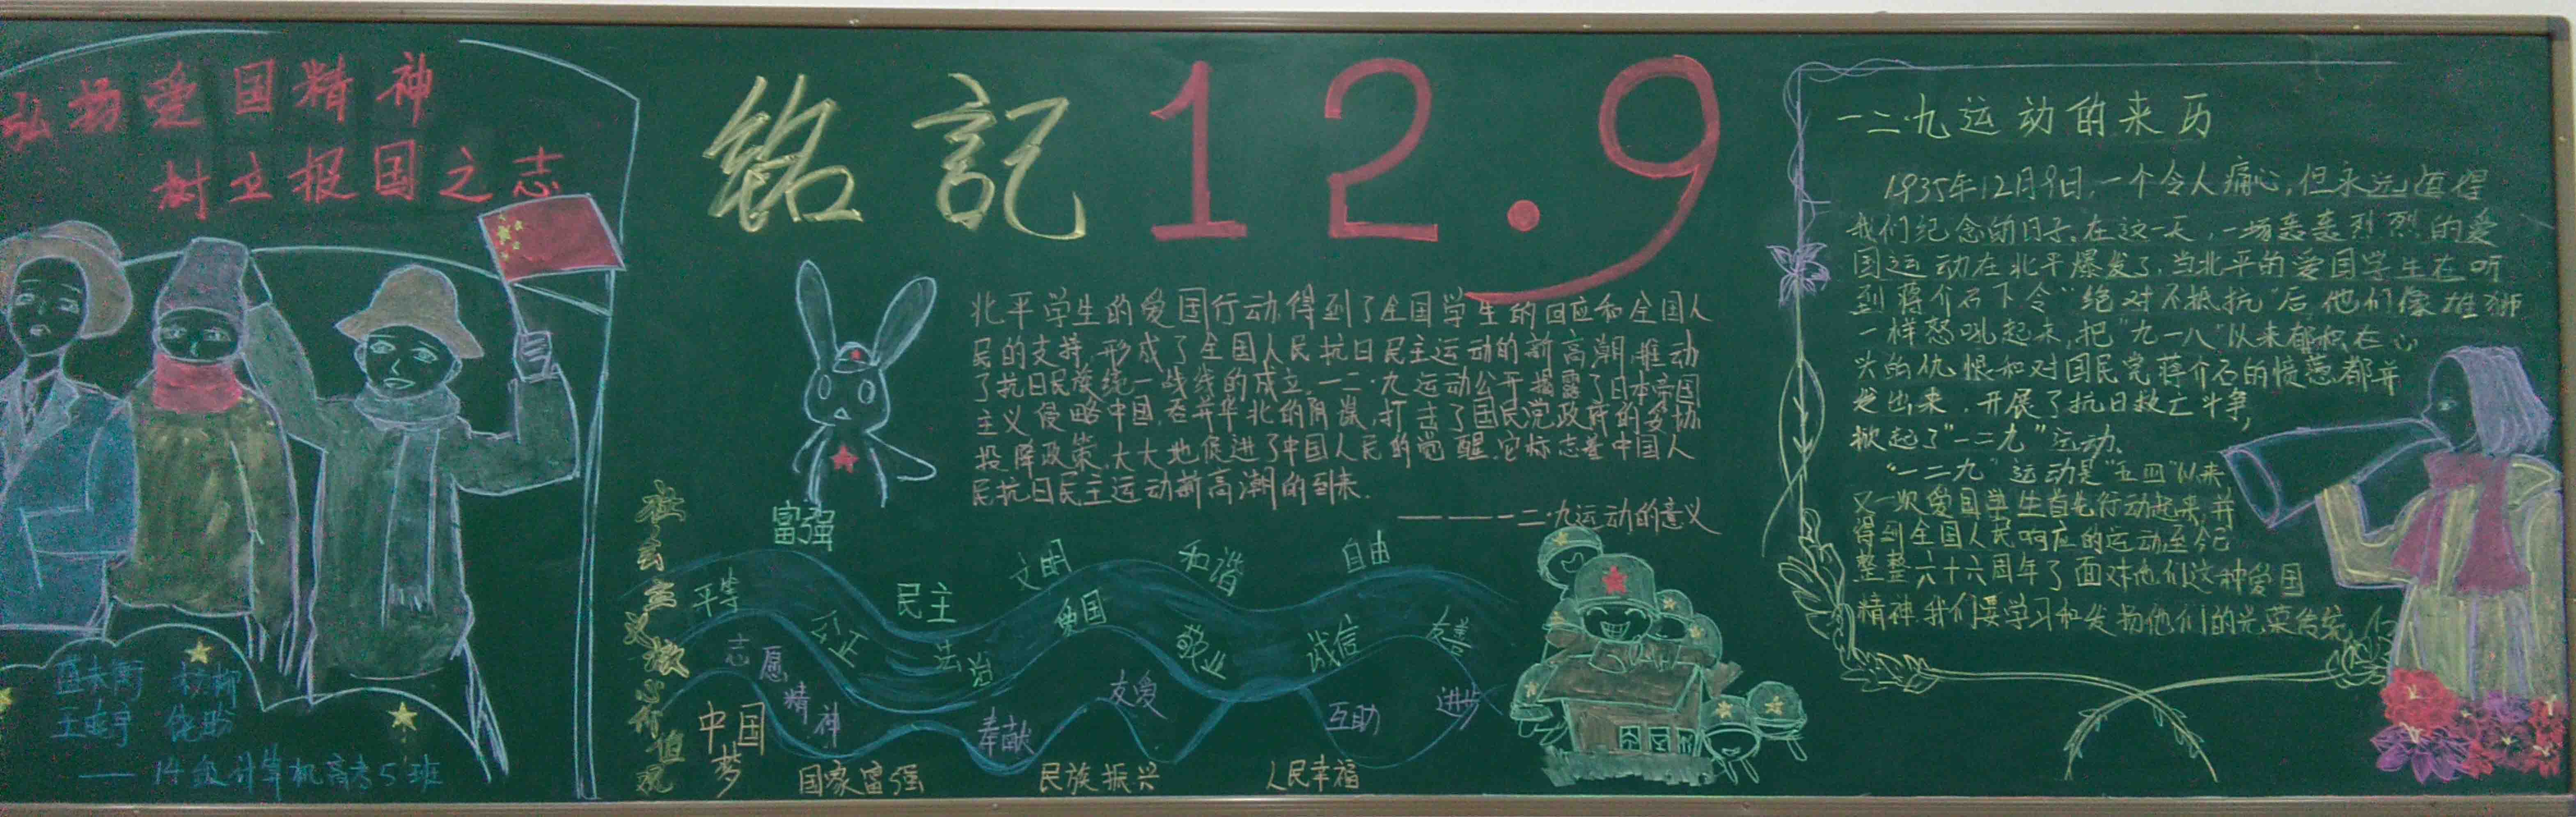 弘扬爱国精神
树立报国之志
王
——14级计算机高考5班
铭記12.9
北平学生的爱国行动,得到了全国学生的回应和全国人
民的支持,形成了全国人民抗日民主运动的新高潮,推动
了抗日民族统一战线的成立。一二·九运动公开揭露了日本帝国
主义侵略中国,吞并华北的阴谋,打击了国民党政府的妥协
投降政策,大大地促进了中国人民的觉醒。它标志着中国人
民抗日民主运动新高潮的到来.
———一二·九运动的意义
社会主义核心价值观
富强
民主
文明
和谐
自由
平等
公正
法治
爱国
敬业
诚信
友善
志愿
精神
奉献
友爱
互助
进步
中国
梦
国家富强
民族振兴
人民幸福
一二·九运动的来历
1935年12月9日,一个令人痛心,但永远值得
我们纪念的日子。在这一天,一场轰轰烈烈的爱
国运动在北平爆发了,当北平的爱国学生在听
到蒋介石下令"绝对不抵抗"后,他们像雄狮
一样怒吼起来,把"九一八"以来郁积在心
头的仇恨和对国民党蒋介石的愤懑都并
发出来,开展了抗日救亡斗争,
掀起了"一二九"运动。
"一二九"运动是"五四"以来
又一次爱国学生首先行动起来,并
得到全国人民响应的运动,至今已
整整六十六周年了面对他们这种爱国
精神,我们要学习和发扬他们的光荣传统